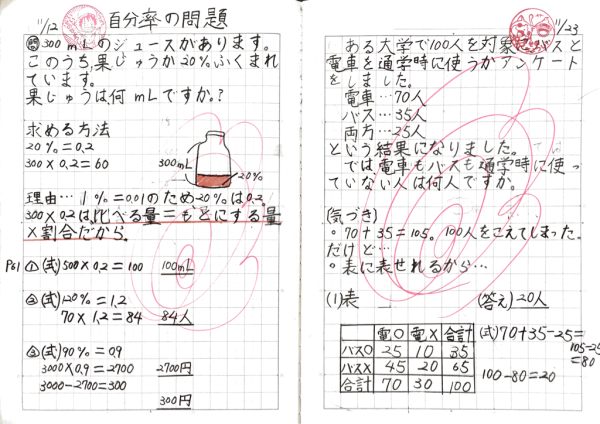 11/12 百分率の問題
問 300mLのジュースがあります。
このうち、果じゅうが20%ふくまれ
ています。
果じゅうは何mLですか。?
求める方法
20%=0.2
300×0.2=60
300mL
20%
理由…1%=0.01のため20%は0.2
300×0.2は、比べる量=もとにする量
×割合だから。
P61 ① (式)500×0.2=100 100mL
② (式)120%=1.2
70×1.2=84 84人
③ (式)90%=0.9
3000×0.9=2700 2700円
3000-2700=300
300円
11/23
ある大学で100人を対象にバスと
電車を通学時に使うかアンケート
をしました。
電車…70人
バス…35人
両方…25人
という結果になりました。
では電車もバスも通学時に使っ
ていない人は何人ですか。
(気づき)
。70+35=105。100人をこえてしまった。
だけど…
。表に表せれるから…
(1)表 (答え)20人
電〇 電× 合計
バス〇 25 10 35
バス× 45 20 65
合計 70 30 100
(式)70+35-25=
105-25
=80
100-80=20